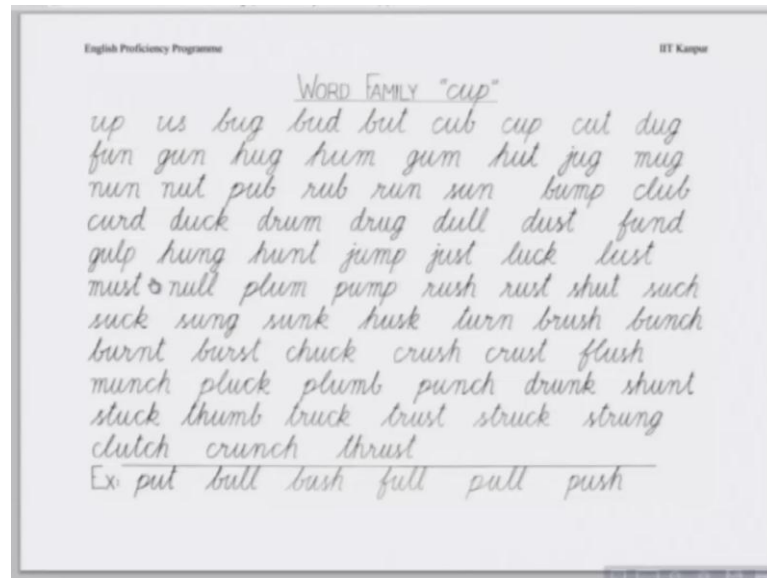 English Proficiency Programme IIT Kanpur
WORD FAMILY "cup"
up us bug bud but cub cup cut dug
fun gun hug hum gum hut jug mug
nun nut pub rub run sun bump club
curd duck drum drug dull dust fund
gulp hung hunt jump just luck lust
must null plum pump rush rust shut such
suck sung sunk husk turn brush bunch
burnt burst chuck crush crust flush
munch pluck plumb punch drunk shunt
stuck thumb truck trust struck strung
clutch crunch thrust
Ex: put bull bush full pull push